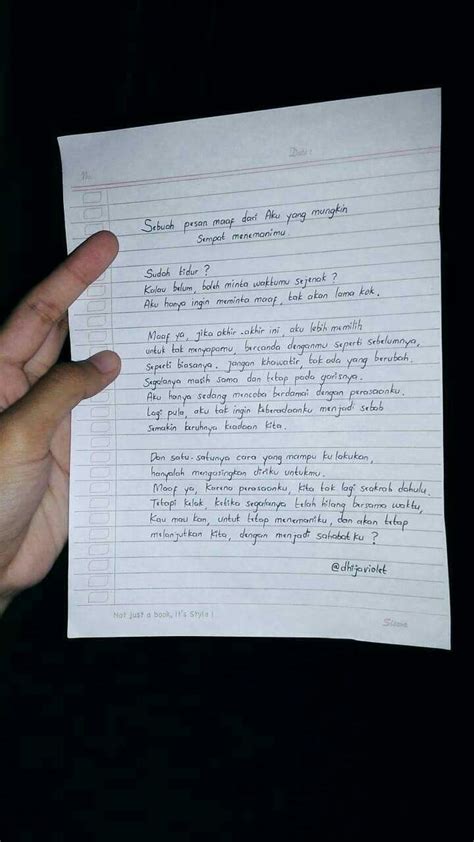 No.
Date :
Sebuah pesan maaf dari Aku yang mungkin
Sempat menemanimu.
Sudah tidur ?
Kalau belum, boleh minta waktumu sejenak ?
Aku hanya ingin meminta maaf, tak akan lama kok.
Maaf ya, jika akhir-akhir ini, aku lebih memilih
untuk tak menyapamu, bercanda denganmu seperti sebelumnya,
Seperti biasanya. jangan khawatir, tak ada yang berubah.
Segalanya masih sama dan tetap pada garisnya.
Aku hanya sedang mencoba berdamai dengan perasaanku.
Lagi pula, aku tak ingin keberadaanku menjadi sebab
Semakin keruhnya keadaan kita.
Dan satu-satunya cara yang mampu ku lakukan,
hanyalah mengasingkan diriku untukmu.
Maaf ya, karena perasaanku, kita tak lagi seakrab dahulu.
Tetapi kelak, ketika segalanya telah hilang bersama waktu,
Kau mau kan, untuk tetap menemaniku, dan akan tetap
melanjutkan kita, dengan menjadi sahabatku ?
@dhijaviolet
Not just a book, it's Style !